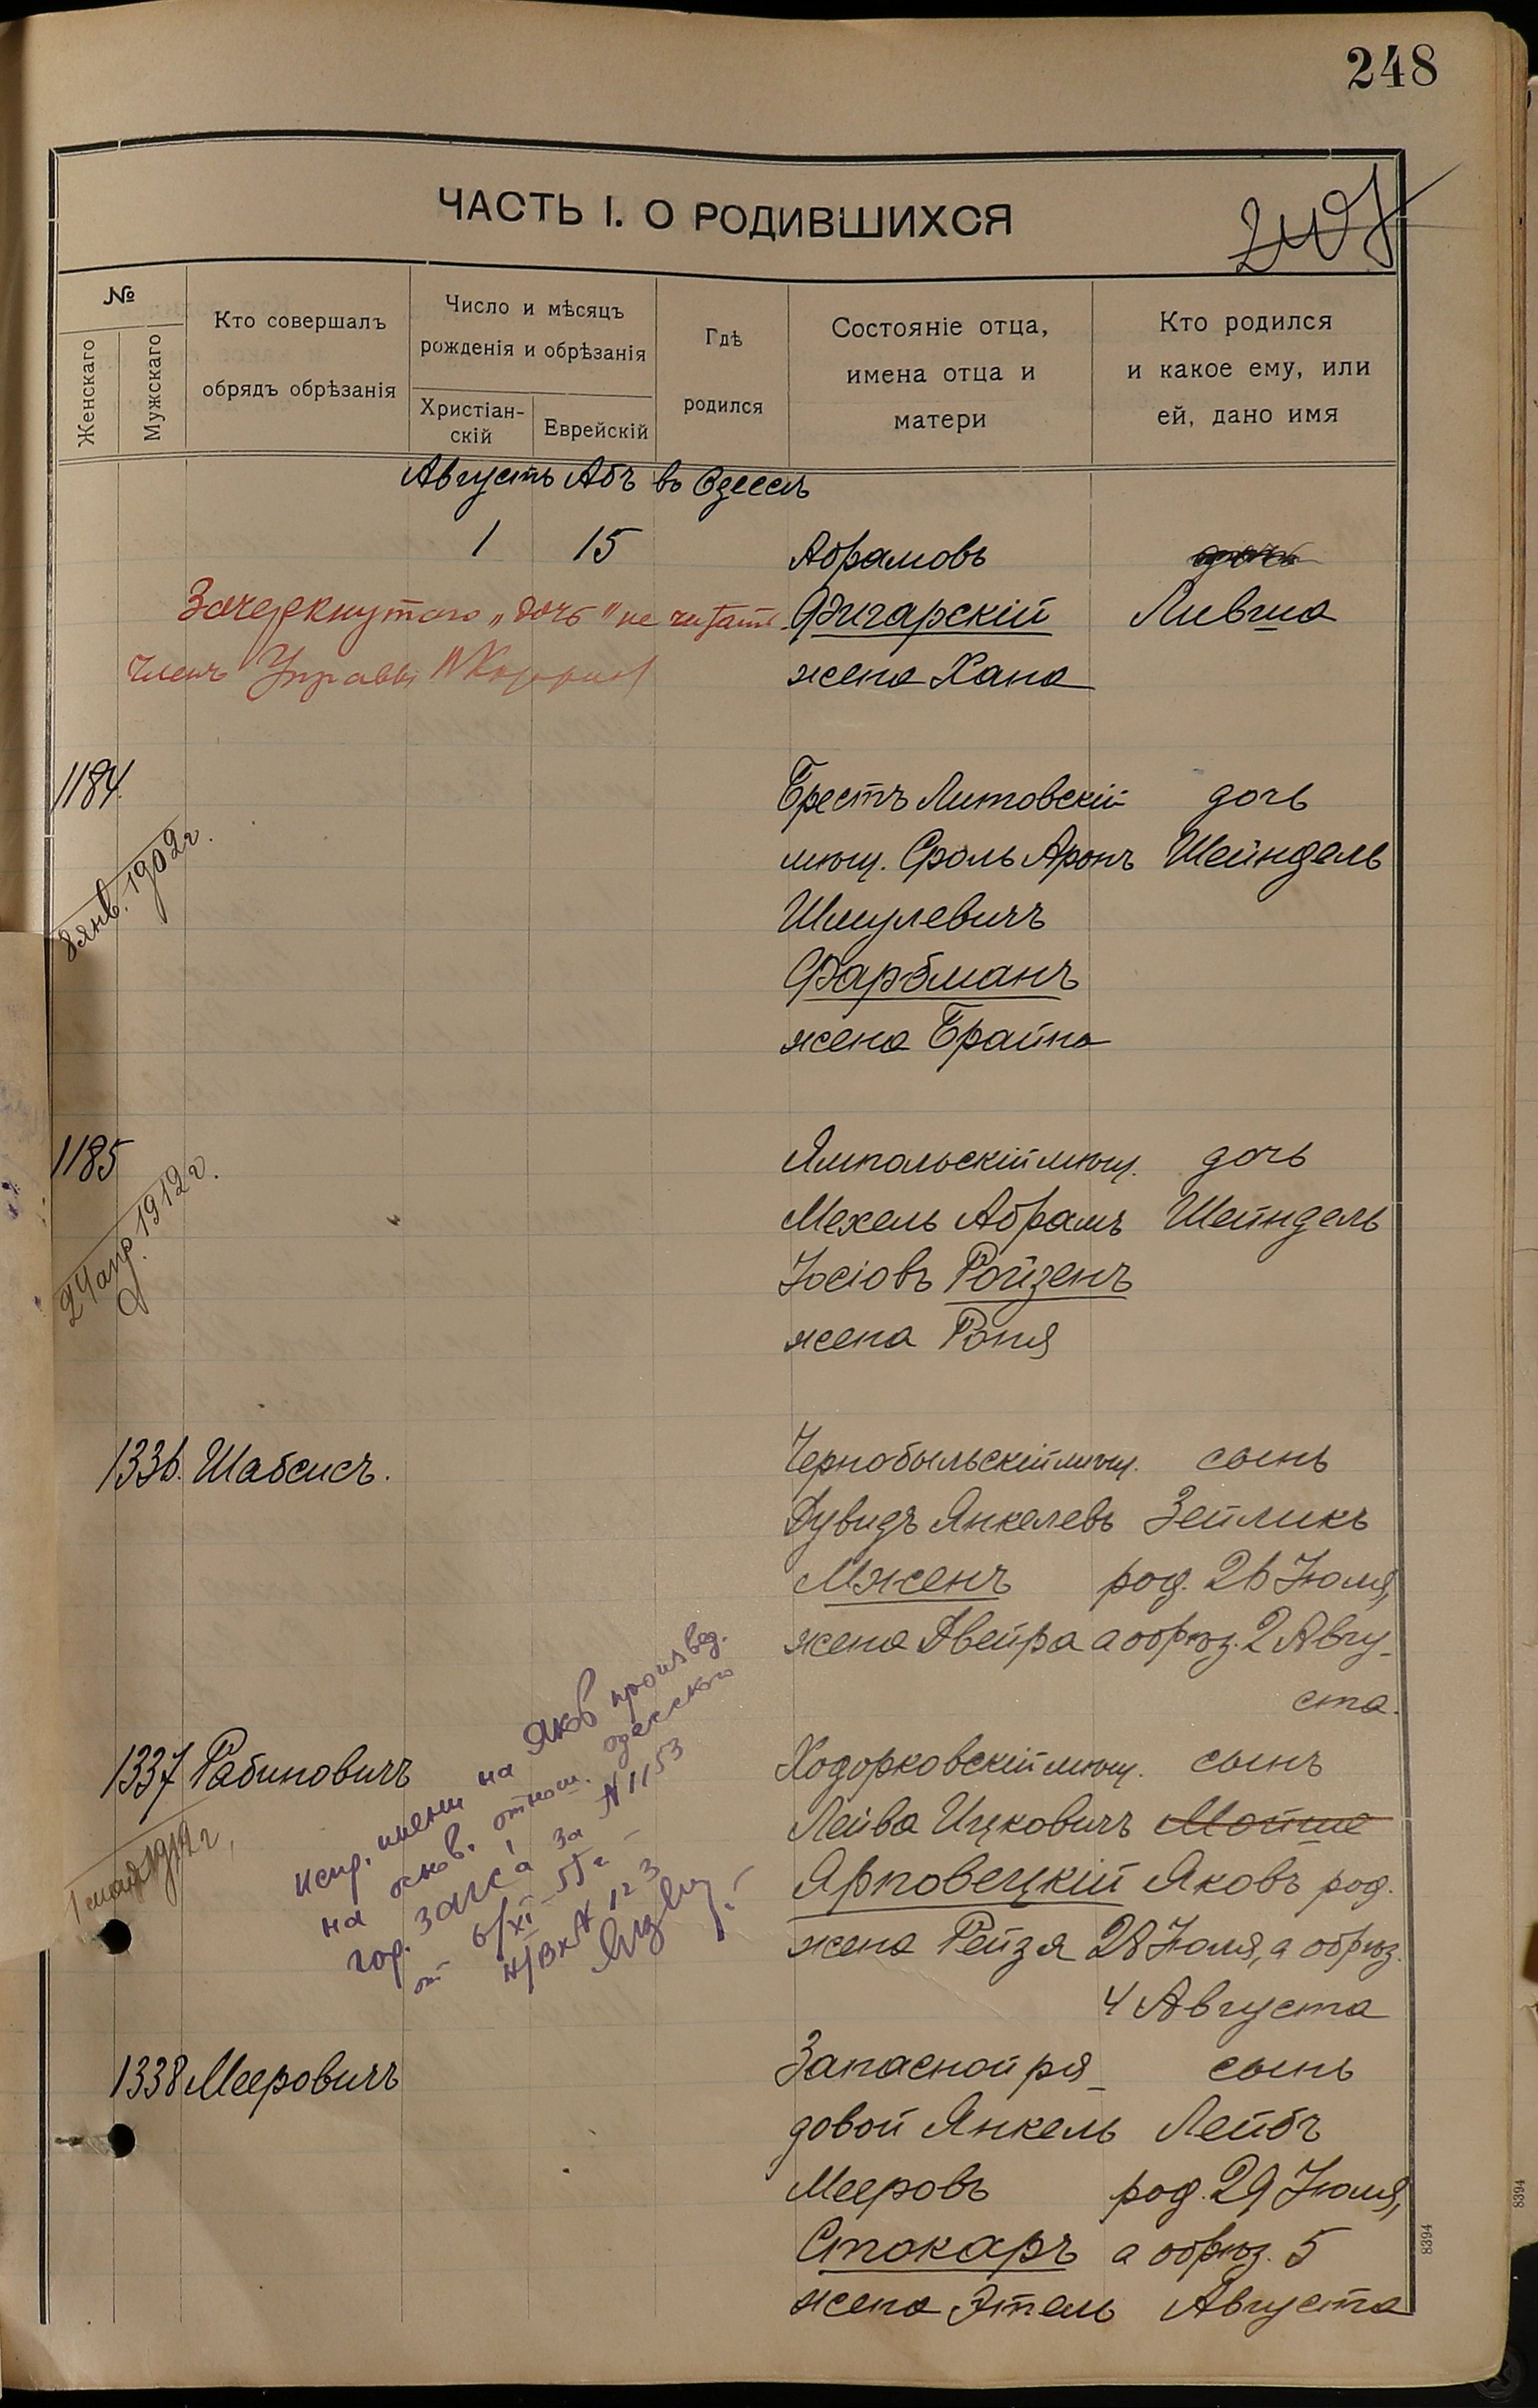 248
ЧАСТЬ I. О РОДИВШИХСЯ
№
Женскаго
Мужскаго
Кто совершалъ
обрядъ обрѣзанія
Число и мѣсяцъ
рожденія и обрѣзанія
Христіан-
скій
Еврейскій
Гдѣ
родился
Состояніе отца,
имена отца и
матери
Кто родился
и какое ему, или
ей, дано имя
Августъ Абъ въ Одессѣ
1 15 Абрамовъ дочь
Зачеркнутого „дочь" не читать.
Членъ Управы
Фигарскій Лившa
жена Хана
1184.
8 янв. 1902 г.
Брестъ Литовскій дочь
мѣщ. Сроль Аронъ Шейндель
Шмулевичъ
Фарбманъ
жена Брайна
1185
24 апр. 1912 г.
Ямпольскій мѣщ. дочь
Мехель Абрамъ Шейндель
Іосіовъ Ройзенъ
жена Роня
1336. Шабсисъ. Чернобыльскій мѣщ. сынъ
Дувидъ Янкелевъ Зейликъ
Мженъ род. 26 Іюля,
жена Двейра а обрѣз. 2 Авгу-
ста.
1337 Рабиновичъ Ходорковскій мѣщ. сынъ
1912 г.
Лейва Ицковичъ Мойше
Ярповецкій Яковъ род.
жена Рейзя 28 Іюля, а обрѣз.
4 Августа
испр. имени на Яков произвед.
на основ. отнош. одесского
гор. загс'а за N 1153
от 6/XI–55 г –
Н/Вх N 123
1338 Мееровичъ Запасной ря- сынъ
довой Янкель Лейбъ
Мееровъ род. 29 Іюля,
Стокаръ а обрѣз. 5
жена Этель Августа
8394
8394